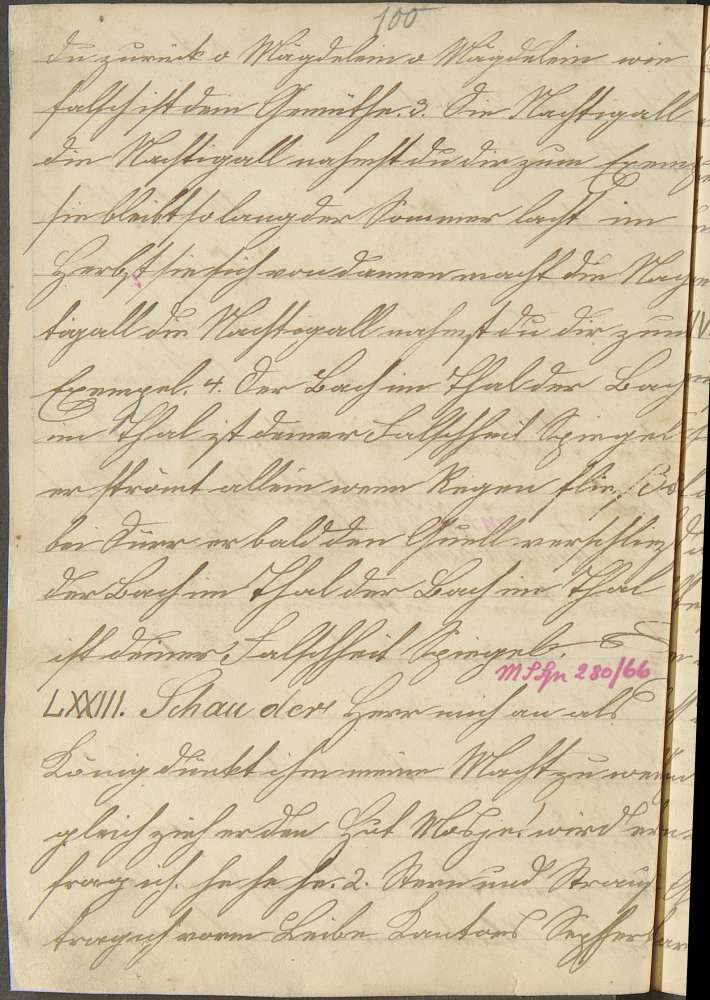 100
du zurück o Mägdelein o Mägdelein wie
falsch ist dein Gemüthe. 3. Die Nachtigall
die Nachtigall nahmst du dir zum Exemp
sie bleibt so lang der Sommer lacht im
Herbst sie sich von dannen macht die Nach
tigall die Nachtigall nahmst du dir zum
Exempel. 4. Der Bach im Thal der Bach
im Thal ist deiner Falschheit Spiegel
er strömt allein wenn Regen fließt
bei Dürr er bald den Quell verschließ
der Bach im Thal der Bach im Thal
ist deiner Falschheit Spiegel.
MS Hn 280/66
LXXIII. Schau der Herr mich an als
König dünkt ihm meine Macht zu wenig
gleich zieh er den Hut Mosje! wird er
frag ich. he he he. 2. Stern und Strauß
trag ich vorm Leibe Kantors